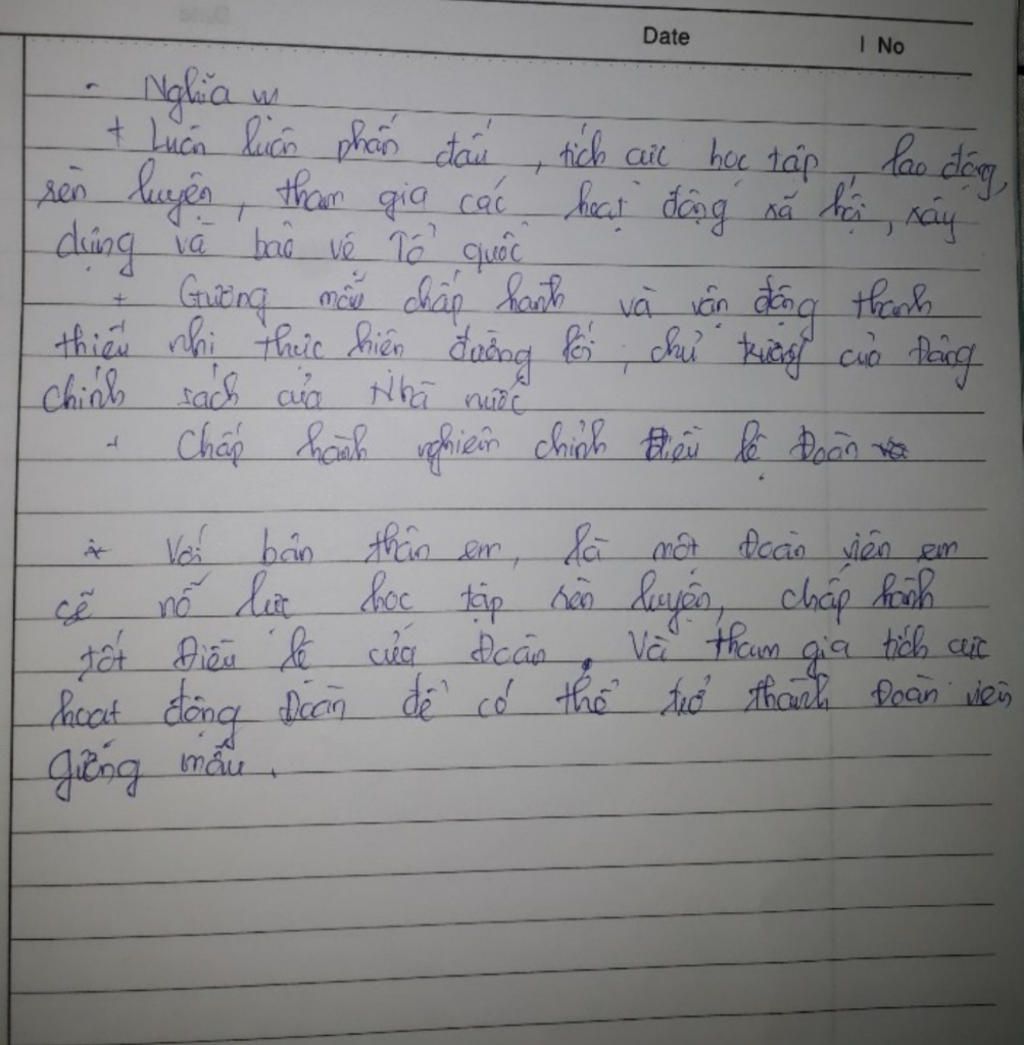 Date | No
- Nghĩa vụ
+ Luôn luôn phấn đấu, tích cực học tập, lao động,
rèn luyện, tham gia các hoạt động xã hội, xây
dựng và bảo vệ Tổ quốc
+ Gương mẫu chấp hành và vận động thanh
thiếu nhi thực hiện đường lối, chủ trương của Đảng
chính sách của Nhà nước
+ Chấp hành nghiêm chỉnh Điều lệ Đoàn
* Với bản thân em, là một Đoàn viên em
sẽ nỗ lực học tập rèn luyện, chấp hành
tốt Điều lệ của Đoàn. Và tham gia tích cực
hoạt động Đoàn để có thể trở thành Đoàn viên
gương mẫu.